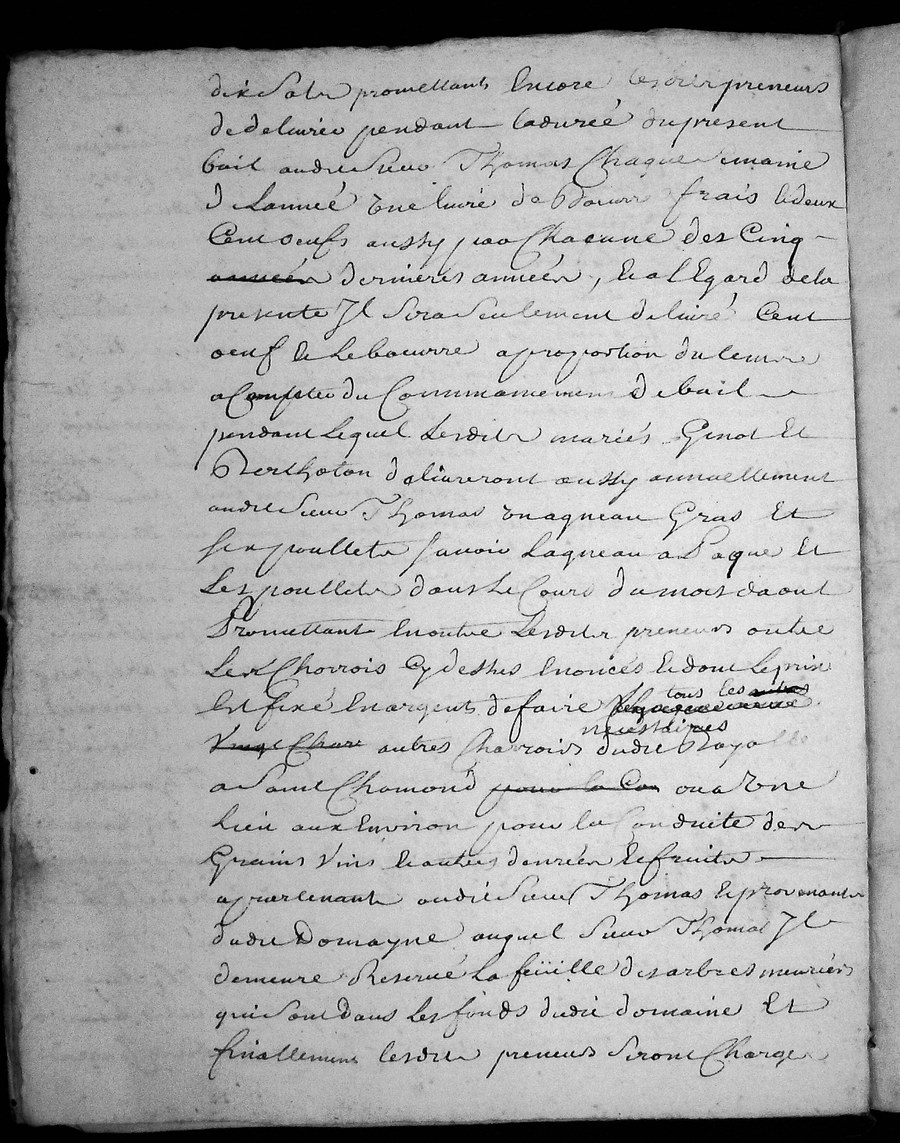 dix sols promettants Encore lesdits preneurs
de deLivrée pendant ladurée du present
bail audit Sieur Thomas Chaque semaine
de Lannée une livre de Beurre frais & deux
Cent oeufs aussy pour Chacune des Cinq
années dernieres années, & a l Egard de la
presente Jl sera seulement delivré Cent
oeuf & Le beurre a proportion du tems
a Compter du Commancement de bail
pendant Lequel Lesdits mariés Ginot Et
Berthoton deLivreront aussy annuellement
audit Sieur Thomas un agneau Gras Et
six poullets savoir Lagneau a Paque Et
Les poullets dans Le Cour du mois daout
Promettant En outre Lesdits preneurs outre
Les Charrois Cy dessus Enoncés & dont Le prix
Est fixé En argent de faire tous les
Vingt Chars autres Charrois necessaires dudit Royalle
a Saint Chamond pour la Con ou a une
Lieu aux Environ pour la Conduite des
Grains Vins & autres denrées & fruits
apartenant audit Sieur Thomas & provenants
dudit Domayne auquel Sieur Thomas Jl
demeure Reservé La feüille des arbres meuriers
qui sont dans Les fonds dudit domaine Et
finallement lesdits preneurs seront Charges